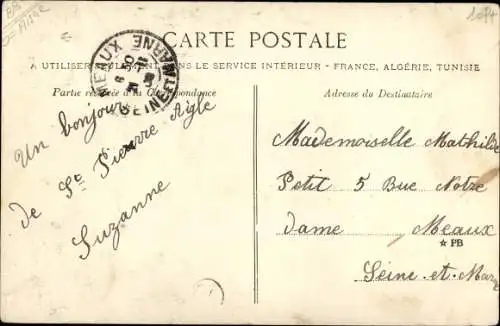 CARTE POSTALE
A UTILISER SEULEMENT DANS LE SERVICE INTÉRIEUR - FRANCE, ALGÉRIE, TUNISIE
Partie réservée à la Correspondance
Adresse du Destinataire
MEAUX
SEINE-ET-MARNE
Un bonjour
de St Pierre Aigle
Suzanne
Mademoiselle Mathilde
Petit 5 Rue Notre
dame Meaux
☆ PB
Seine-et-Marne